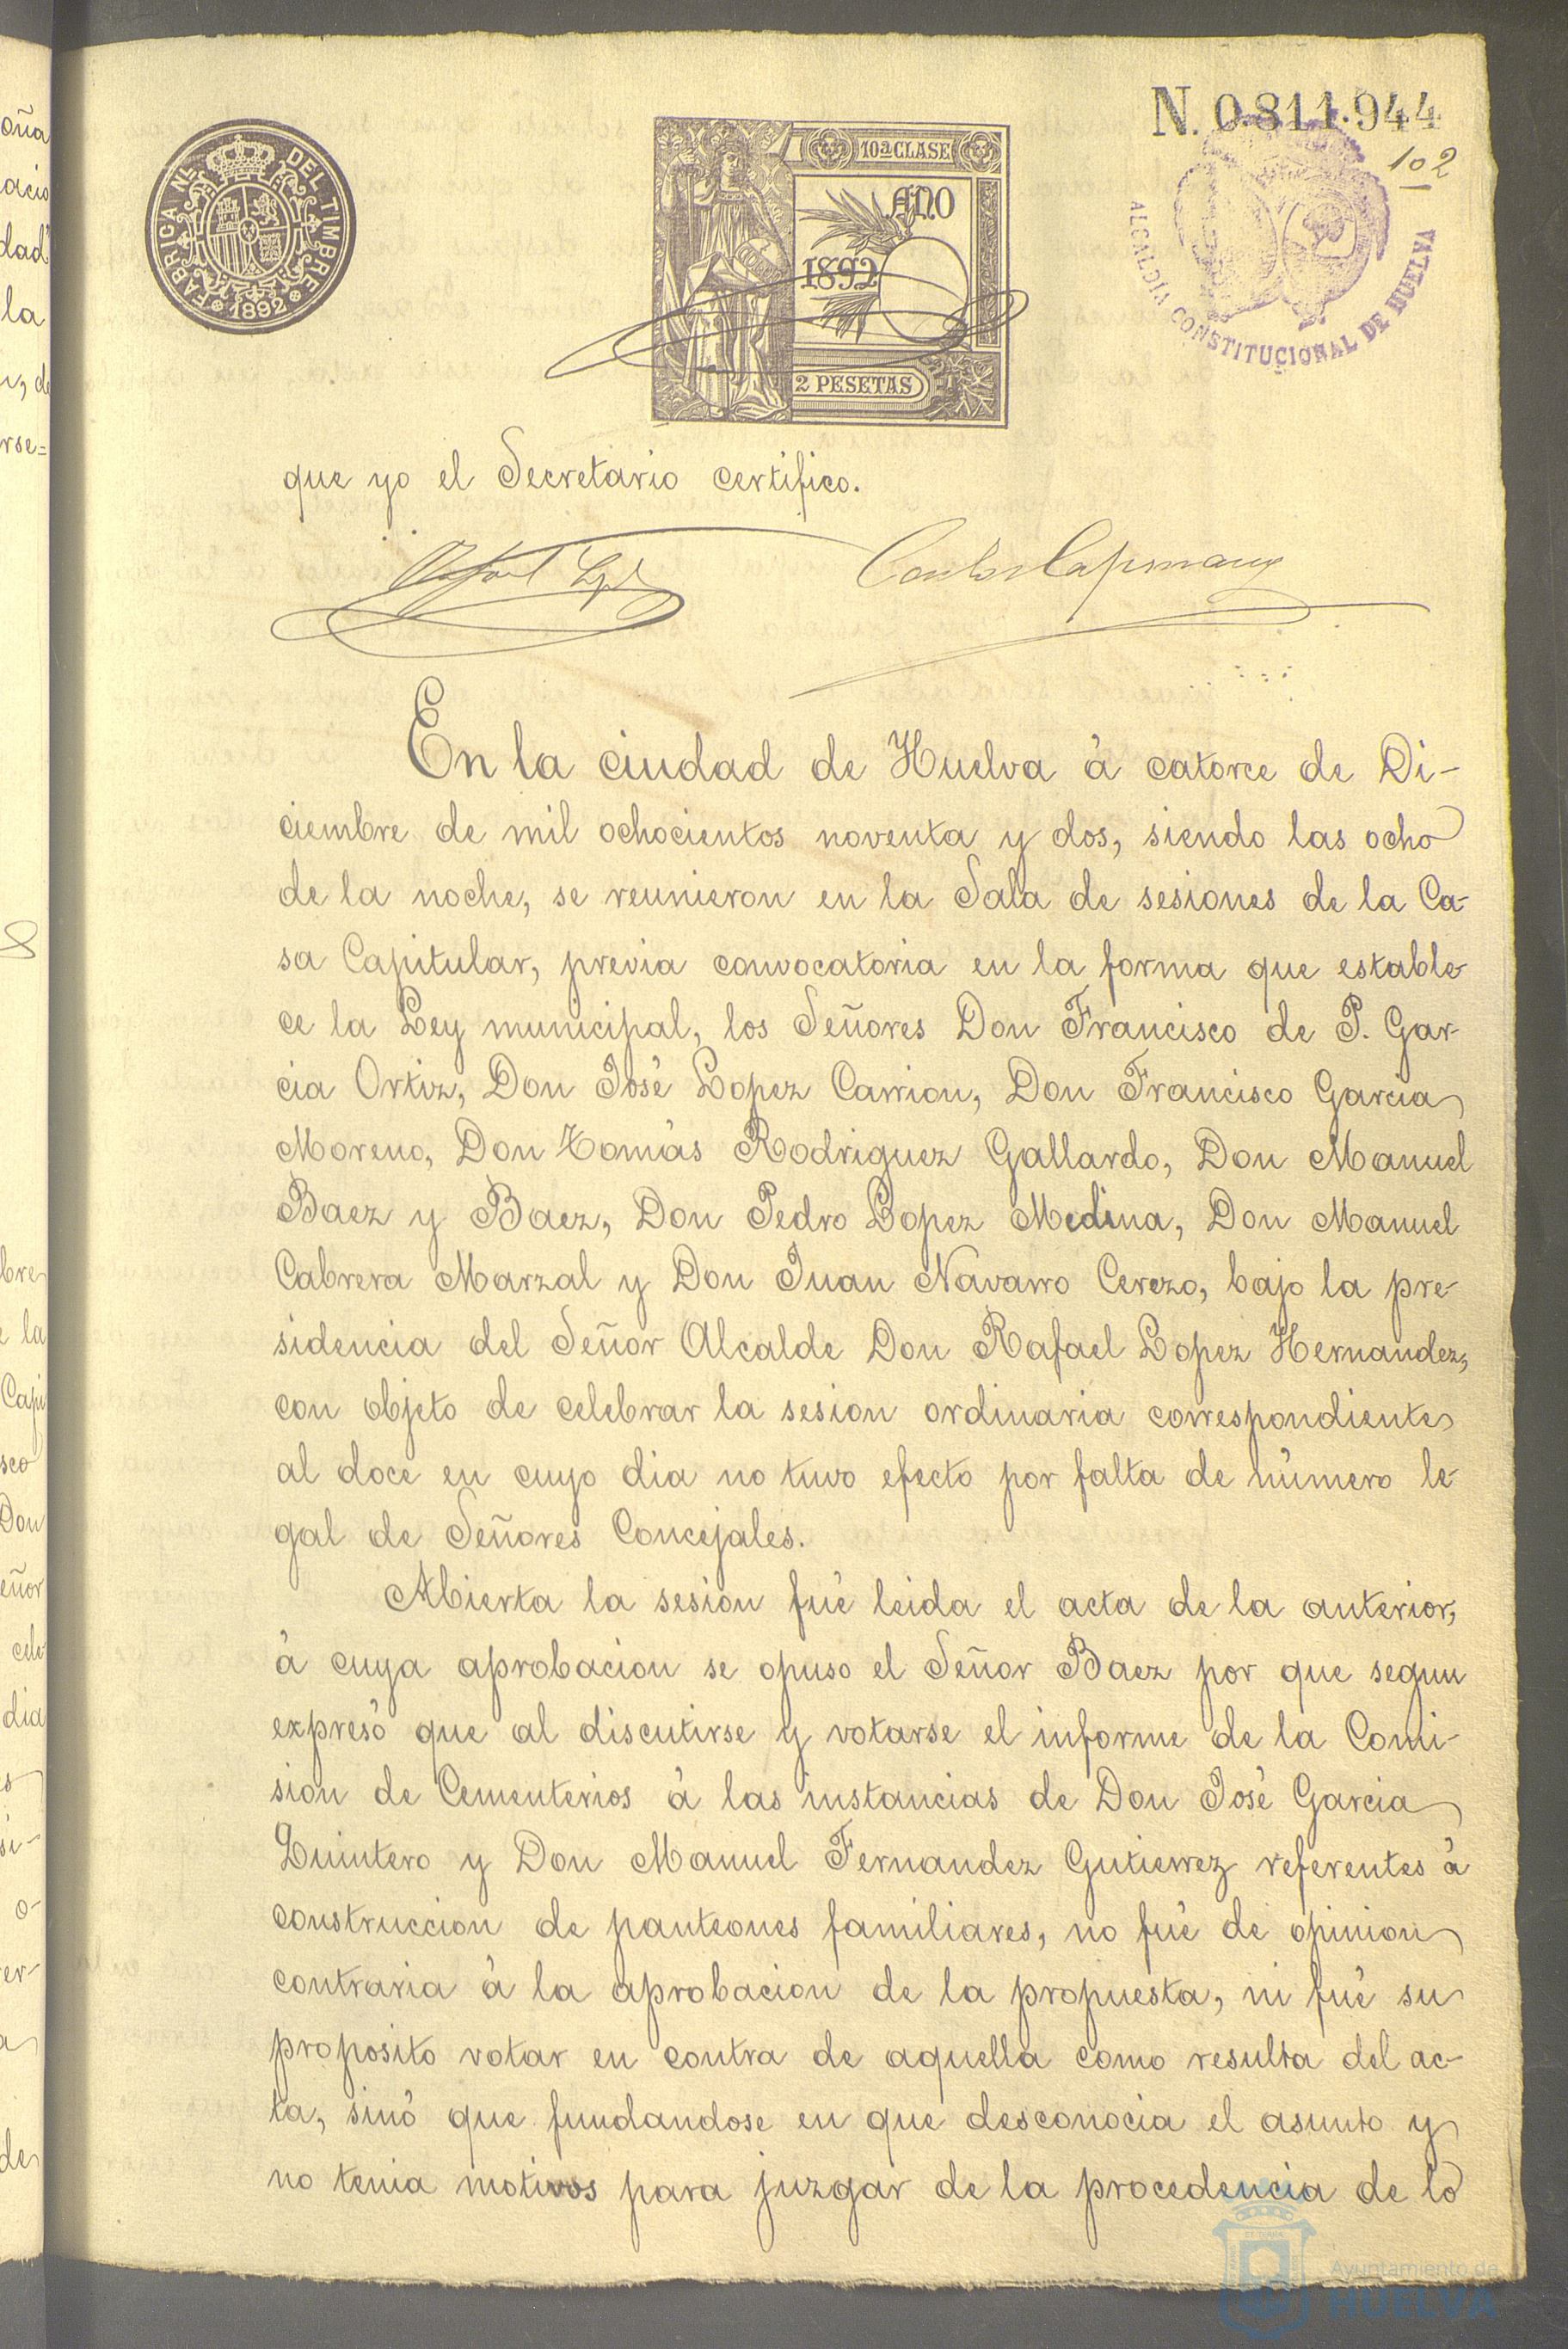 N. 0.811.944
102
FABRICA NL. DEL TIMBRE
1892
10ª CLASE
AÑO
1892
2 PESETAS
ALCALDIA CONSTITUCIONAL DE HUELVA
que yo el Secretario certifico.
Rafael Lopez
Carlos Capmany
En la ciudad de Huelva à catorce de Di-
ciembre de mil ochocientos noventa y dos, siendo las ocho
de la noche, se reunieron en la Sala de sesiones de la Ca-
sa Capitular, previa convocatoria en la forma que estable-
ce la Ley municipal, los Señores Don Francisco de P. Gar-
cia Ortiz, Don José Lopez Carrion, Don Francisco Garcia
Moreno, Don Tomàs Rodriguez Gallardo, Don Manuel
Baez y Baez, Don Pedro Lopez Medina, Don Manuel
Cabrera Marzal y Don Juan Navarro Cerezo, bajo la pre-
sidencia del Señor Alcalde Don Rafael Lopez Hernandez,
con objeto de celebrar la sesion ordinaria correspondiente
al doce en cuyo dia no tuvo efecto por falta de nùmero le-
gal de Señores Concejales.
Abierta la sesion fué leida el acta de la anterior,
à cuya aprobacion se opuso el Señor Baez por que segun
expresó que al discutirse y votarse el informe de la Comi-
sion de Cementerios à las instancias de Don José Garcia
Quintero y Don Manuel Fernandez Gutierrez referentes à
construccion de panteones familiares, no fué de opinion
contraria à la aprobacion de la propuesta, ni fué su
proposito votar en contra de aquella como resulta del ac-
ta, sinó que fundandose en que desconocia el asunto y
no tenia motivos para juzgar de la procedencia de lo
Ayuntamiento de
HUELVA